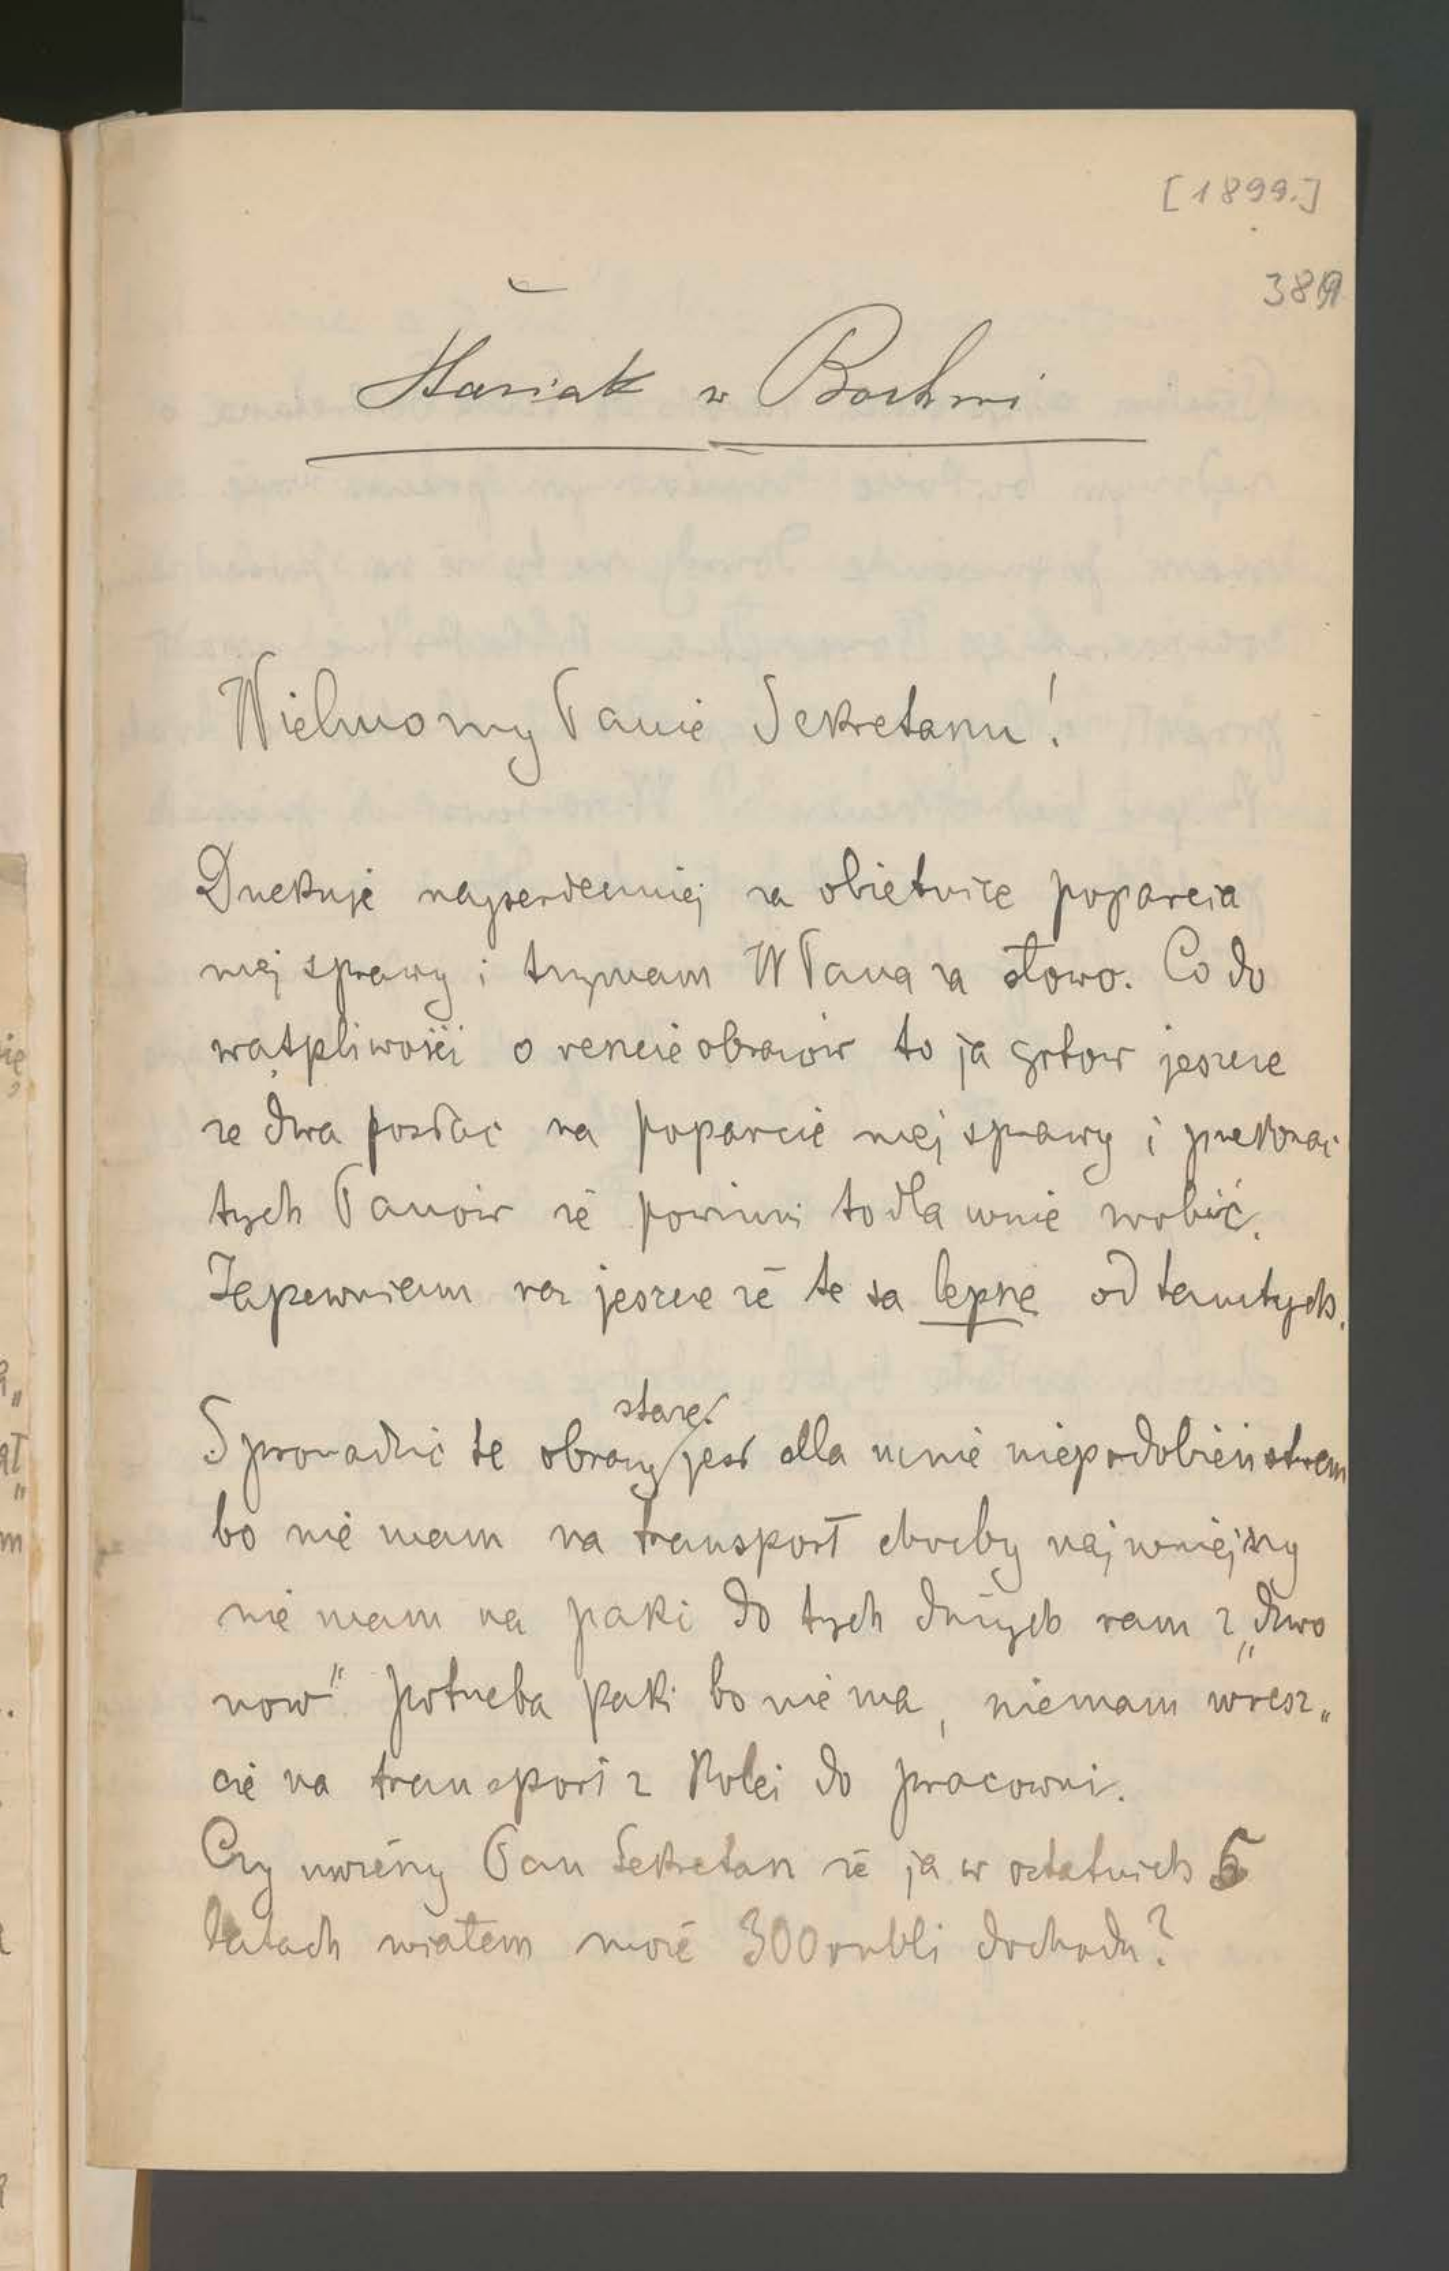 [1899.]
389
Stasiak w Bochni
Wielmożny Panie Sekretarzu!
Dziekuje najserdeczniej za obietnice poparcia
mej sprawy i trzymam W Pana za słowo. Co do
watpliwości o reszcie obrazów to ja gotow jeszcze
ze dwa posłac na poparcie mej sprawy i przekonac
tych Panów że powinni to dla mnie zrobić.
Zapewniam raz jeszcze że te sa lepsze od tamtych.
Sprowadzić te obrazy stare jest dla mnie niepodobieństwem
bo nie mam na transport choćby najmniejszy
nie mam na paki do tych dużych ram z „dzwo
now" potrzeba paki bo nie ma, niemam wresz„
cie na transport z Kolei do pracowni.
Czy uwierzy Pan Sekretarz że ja w ostatnich 5
latach miałem może 300 rubli dochodu?
ię
ał„
m